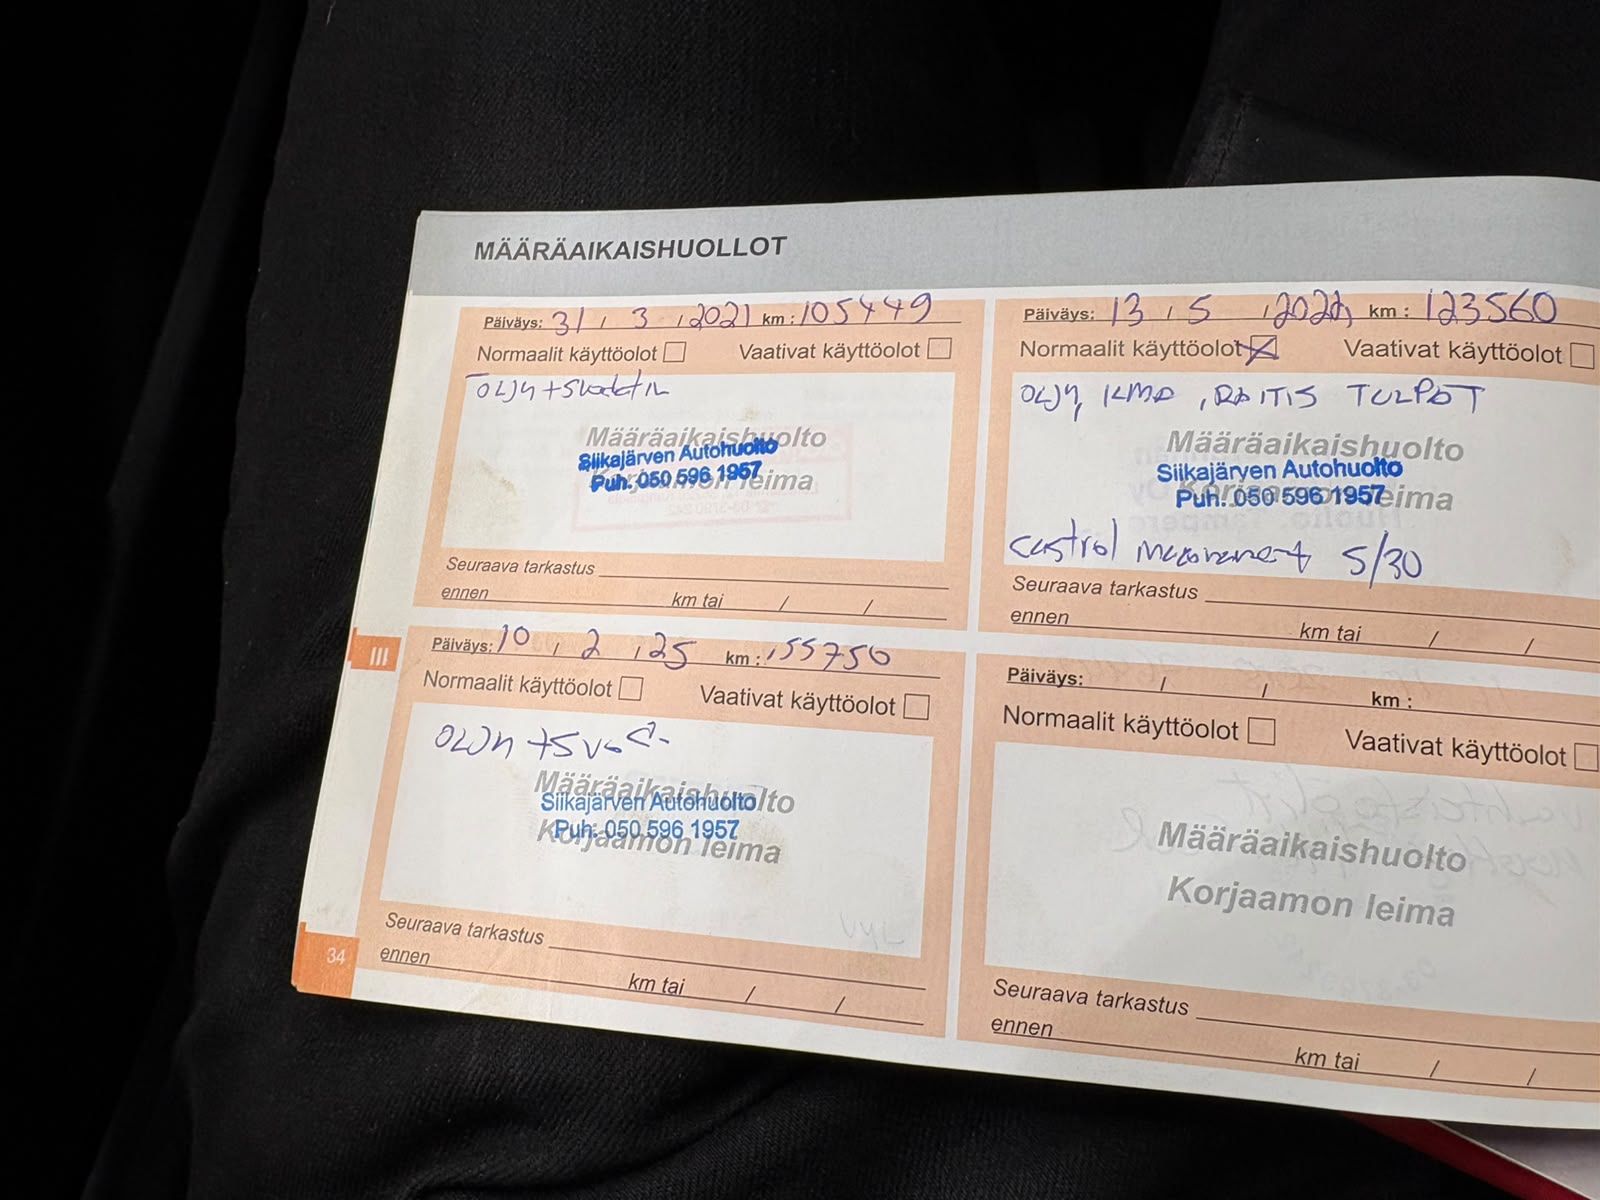 MÄÄRÄAIKAISHUOLLOT
Päiväys: 31 / 3 / 2021 km : 105449
Normaalit käyttöolot Vaativat käyttöolot
Määräaikaishuolto
Siikajärven Autohuolto
Puh. 050 596 1957
Korjaamon leima
Seuraava tarkastus
ennen km tai / /
Päiväys: 13 / 5 / 2022 km : 123560
Normaalit käyttöolot Vaativat käyttöolot
TULPAT
Määräaikaishuolto
Siikajärven Autohuolto
Puh. 050 596 1957
Korjaamon leima
Castrol 5/30
Seuraava tarkastus
ennen km tai / /
III
Päiväys: 10 / 2 / 25 km : 155750
Normaalit käyttöolot Vaativat käyttöolot
Määräaikaishuolto
Siikajärven Autohuolto
Puh. 050 596 1957
Korjaamon leima
Seuraava tarkastus
ennen km tai / /
Päiväys: / / km :
Normaalit käyttöolot Vaativat käyttöolot
Määräaikaishuolto
Korjaamon leima
Seuraava tarkastus
ennen km tai / /
34